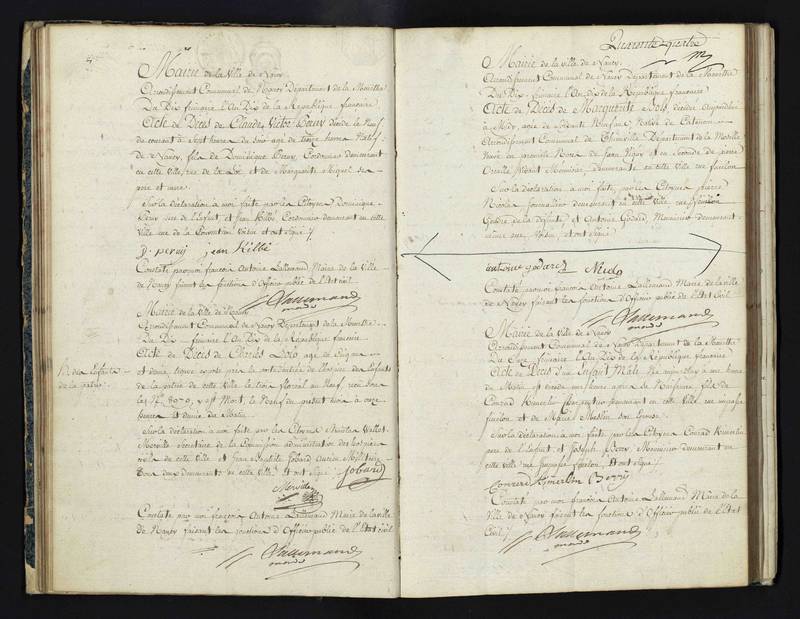 Mairie de la Ville de Nancy
Arrondissement Communal de Nancy Département de la Meurthe
Du Dix frimaire l'An Dix de la République française
Acte de Décès de Claude Victor Peruy décédé le Neuf
du courant à Sept heures du Soir agé de treize natif
de Nancy, fils de Dominique Peruy Cordonnier demeurant
en cette ville, rue de la et de Marguerite Miguel ses
père et mère
Sur la déclaration à moi faite par les Citoyens Dominique
Peruy père de l'Enfant et Jean Kilbé Cordonnier demeurant en cette
Ville rue de la Constitution Voisin et ont signé
D. peruy jean Kilbé
Constaté par moi françois Antoine Lallemand Maire de la Ville
de Nancy faisant les fonctions d'Officier public de l'Etat civil
Lallemand
maire
Mairie de la Ville de Nancy
Arrondissement Communal de Nancy Département de la Meurthe
Du Dix frimaire l'An Dix de la République française
Acte de Décès de Charles agé de
et demi, trouvé exposé
Nos Enfants
de la patrie
de la patrie de cette Ville le trois floréal an Neuf
N.° 8070, y est Mort, le Neuf du présent mois à onze
heures et demie du Matin
Sur la déclaration à moi faite par les Citoyens Nicolas Vallet
Merville Secrétaire de la Commission administrative des hospices
civils de cette Ville et Jean Baptiste Gobard Ancien Militaire
tous deux demeurants en cette Ville et ont signé Gobard
Merville
Constaté par moi françois Antoine Lallemand Maire de la Ville
de Nancy faisant les fonctions d'Officier public de l'Etat civil
Lallemand
maire
Quarante quatre
Mairie de la Ville de Nancy
Arrondissement Communal de Nancy Département de la Meurthe
Du Dix frimaire l'An Dix de la République française
Acte de Décès de Marguerite décédée Aujourd'hui
à Midi, agée de Soixante Neuf ans Native de Catenom
Arrondissement Communal de Thionville Département de la Moselle
Veuve en première Noces de Jean et en Seconde de pierre
Menuisier, demeurante en cette Ville rue
Sur la déclaration à moi faite par les Citoyens pierre
Nicolas Journallier demeurant en cette Ville rue
Gendre de la défunte et Antoine Godard, Menuisier demeurant
même rue Voisin et ont signé
antoine godard
Constaté par moi françois Antoine Lallemand Maire de la Ville
de Nancy faisant les fonctions d'Officier public de l'Etat civil
Lallemand
maire
Mairie de la Ville de Nancy
Arrondissement Communal de Nancy Département de la Meurthe
Du Onze frimaire l'An Dix de la République française
Acte de Décès d'un Enfant Male Né aujourd'hui à une heure
du Matin et décédé une heure après sa Naissance, fils de
Conrad demeurant en cette Ville, rue
et de Marie son Epouse
Sur la déclaration à moi faite par les Citoyens Conrad
père de l'Enfant et Joseph Menuisier demeurant en
cette Ville rue et ont signé
Constaté par moi françois Antoine Lallemand Maire de la
Ville de Nancy faisant les fonctions d'Officier public de l'Etat
Civil
Lallemand
maire